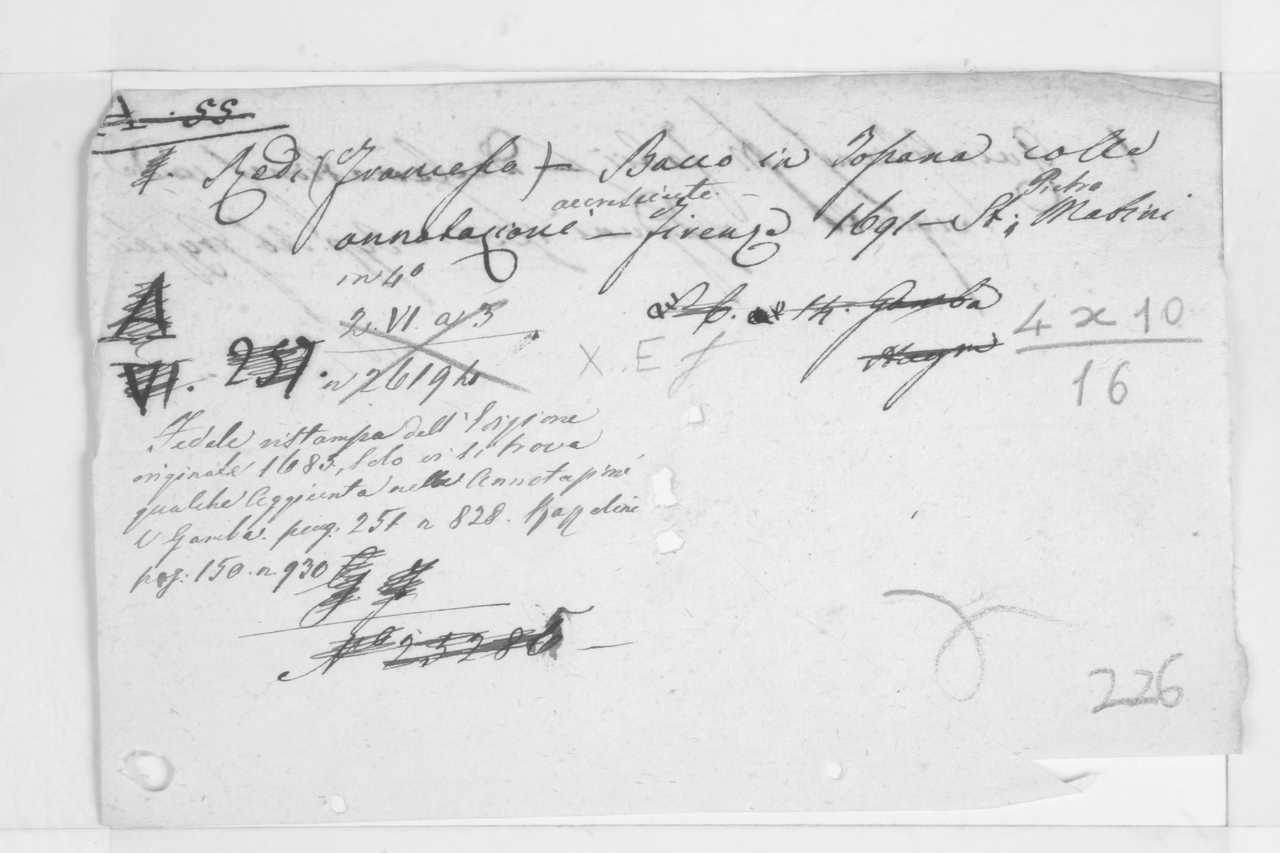 55
Redi (Francesco) — Bacco in Toscana colle
accresciute — Pietro
annotazioni — Firenze 1691 — St: Matini
in 4º
A
2. VI. ar. 3
14. Gamba
4 x 10
VI. 257.
n 2619
X. E f
16
Fedele ristampa dell'Edizione
originale 1685, solo vi si trova
qualche Aggiunta nelle Annotazioni
V Gamba. pag. 251 n 828. Razzolini
pag: 150. n. 930
Nº 23286 —
226